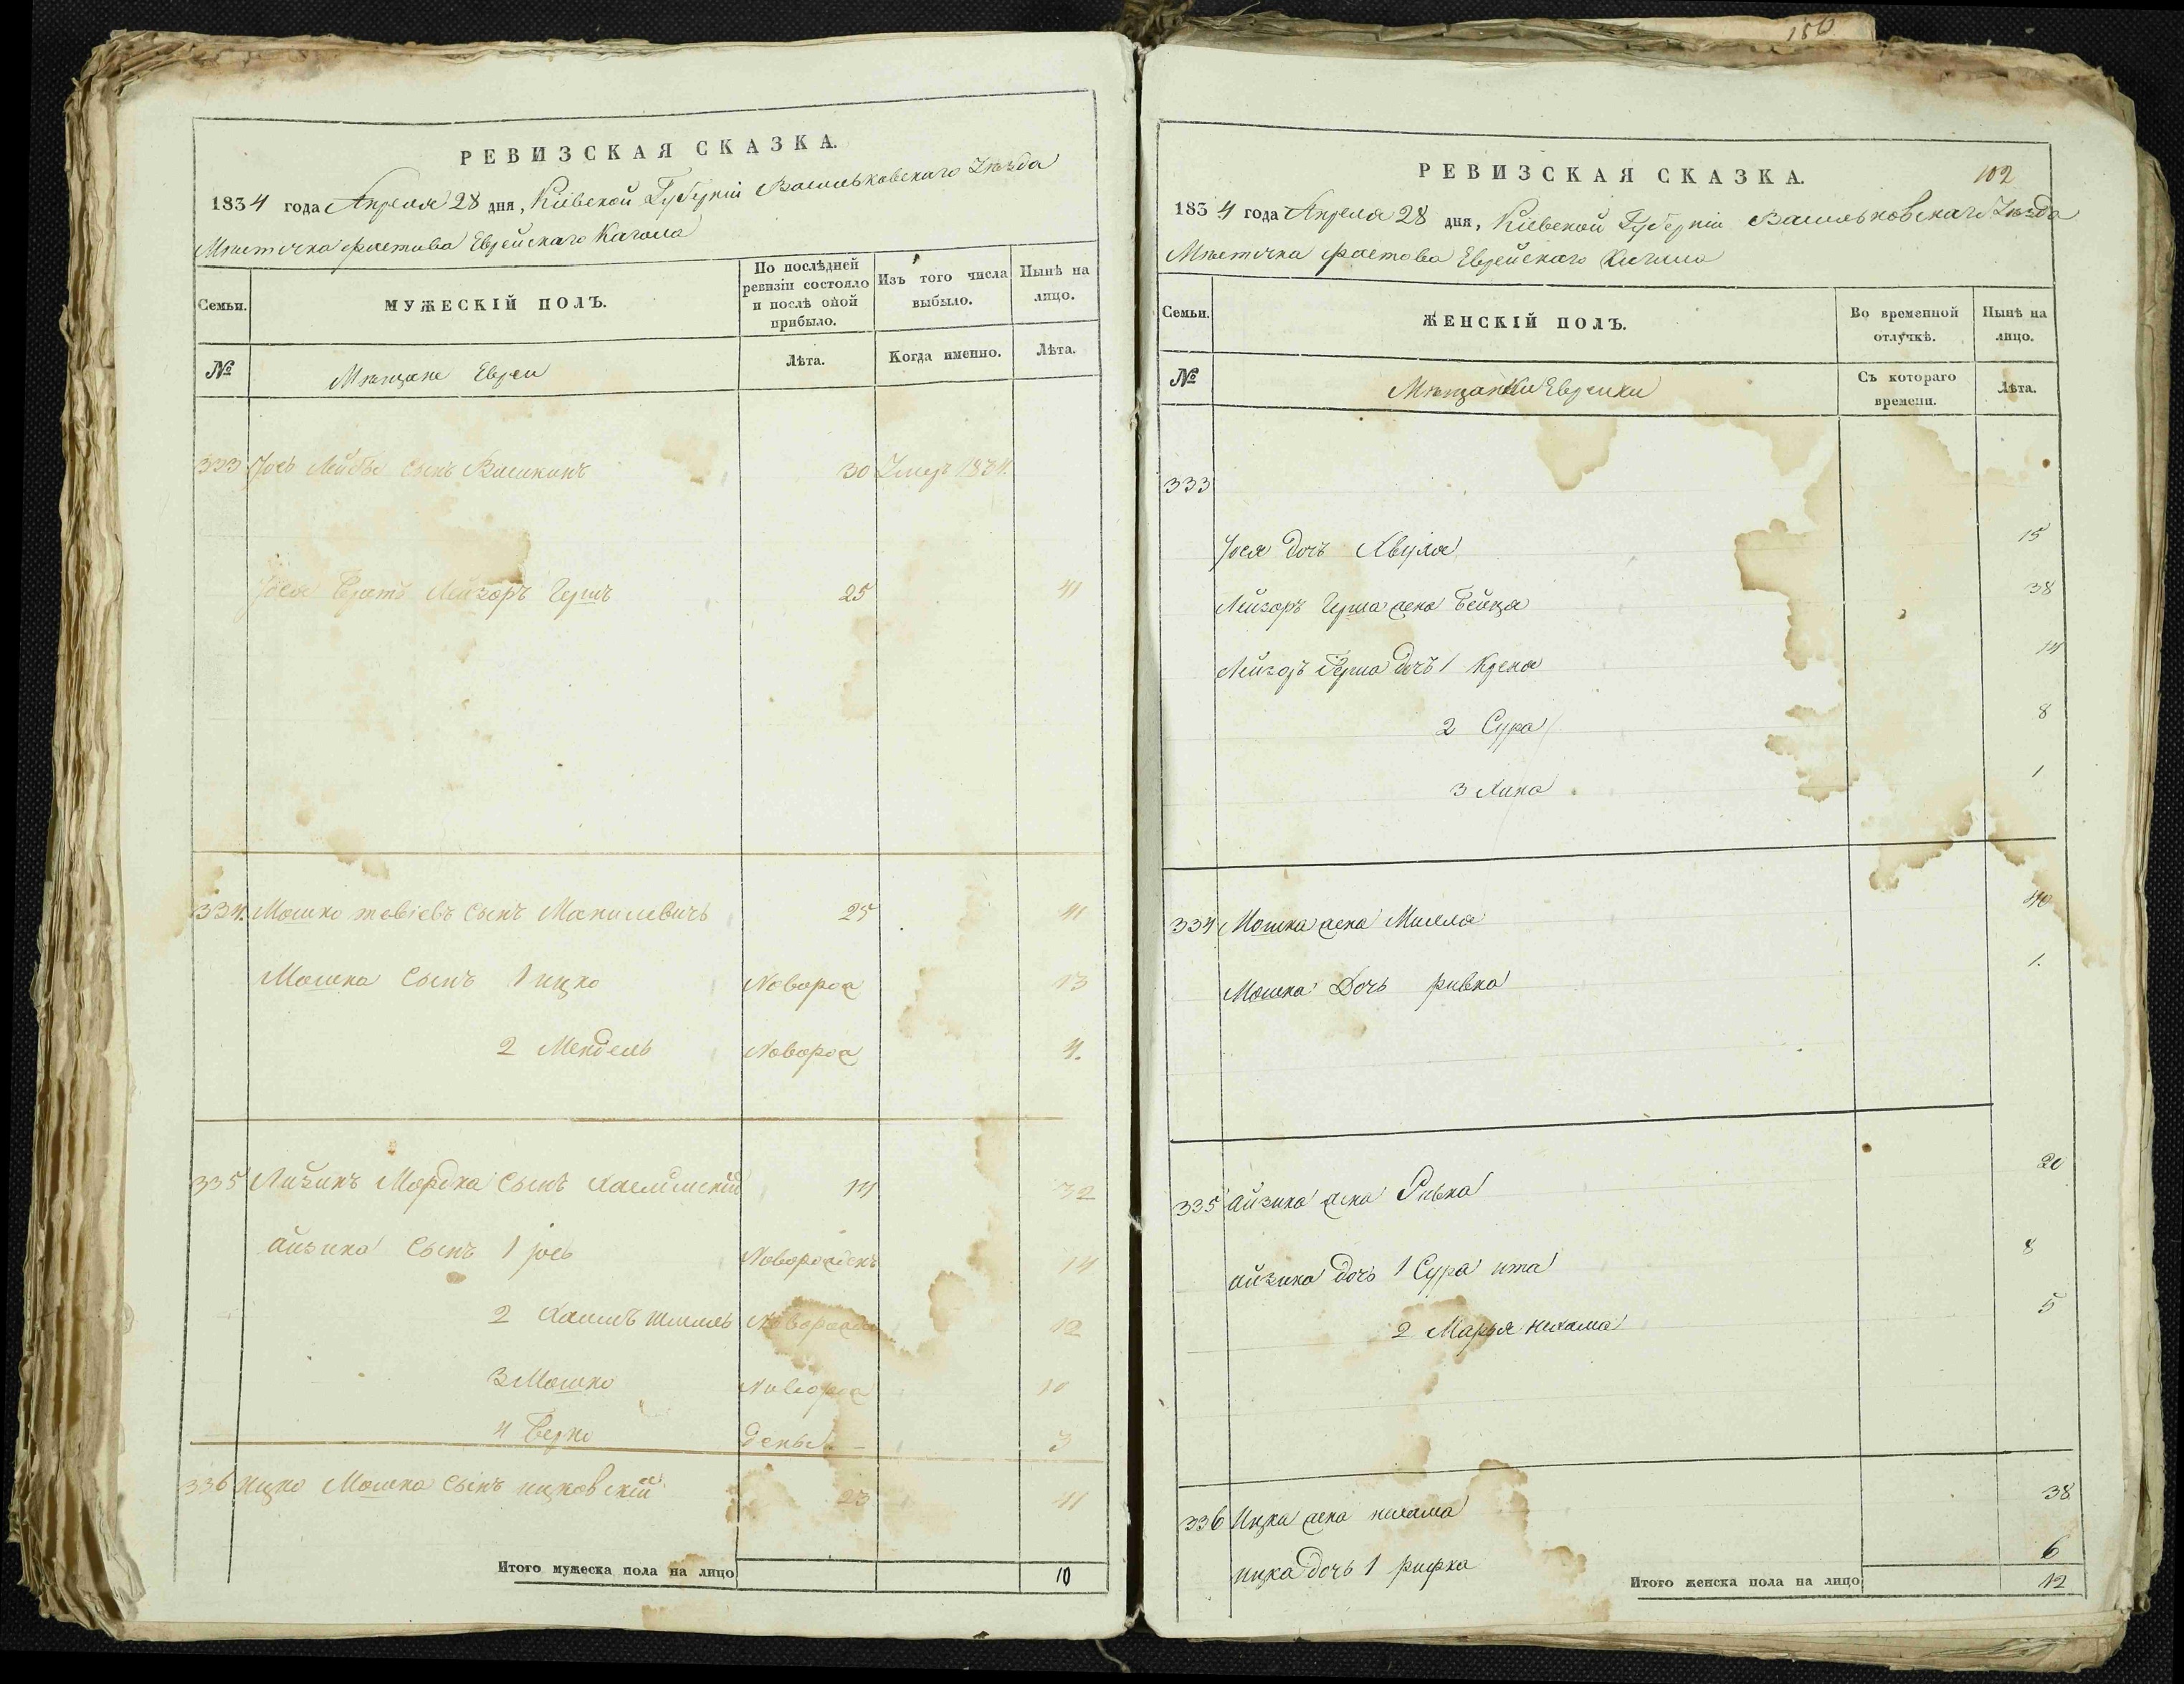 150
РЕВИЗСКАЯ СКАЗКА.
1834 года Апреля 28 дня, Кіевской Губерніи Васильковскаго Уѣзда
Мѣстечка Фастова Еврейскаго Кагала
Семьи.
МУЖЕСКІЙ ПОЛЪ.
По послѣдней ревизіи состояло и послѣ оной прибыло.
Изъ того числа выбыло.
Нынѣ на лицо.
№
Мѣщане Евреи
Лѣта.
Когда именно.
Лѣта.
333 Іось Лейбы сынъ 30 Умеръ
Іося братъ Лейзоръ Гершъ 25 41
334. Мошко тевіевъ сынъ 25 41
Мошка сынъ 1 ицко Новорож 13
2 Мендель Новорож 4.
335 Айзикъ Мордка сынъ 14 32
айзика сынъ 1 іось Новорожденъ 14
2 Хаимъ шмиль Новорожден 12
3 Мошко Новорож 10
4 Берко деные 3
336 Ицко Мошка сынъ ицковскій 23 41
Итого мужеска пола на лицо 10
РЕВИЗСКАЯ СКАЗКА.
102
1834 года Апреля 28 дня, Кіевской Губерніи Васильковскаго Уѣзда
Мѣстечка Фастова Еврейскаго Кагала
Семьи.
ЖЕНСКІЙ ПОЛЪ.
Во временной отлучкѣ.
Нынѣ на лицо.
№
Мѣщанки Еврейки
Съ котораго времени.
Лѣта.
333
Іося дочь 15
Лейзоръ Герша жена Бейла 38
Лейзоръ Герша дочь 1 Крена 14
2 Сура 8
3 Хана 1
334 Мошка жена 40
Мошка Дочь ривка 1.
335 айзика жена Ривка 30
айзика дочь 1 Сура ита 8
2 Марья нехама 5
336 Ицка жена нехама 38
ицка дочь 1 рифка 6
Итого женска пола на лицо 12